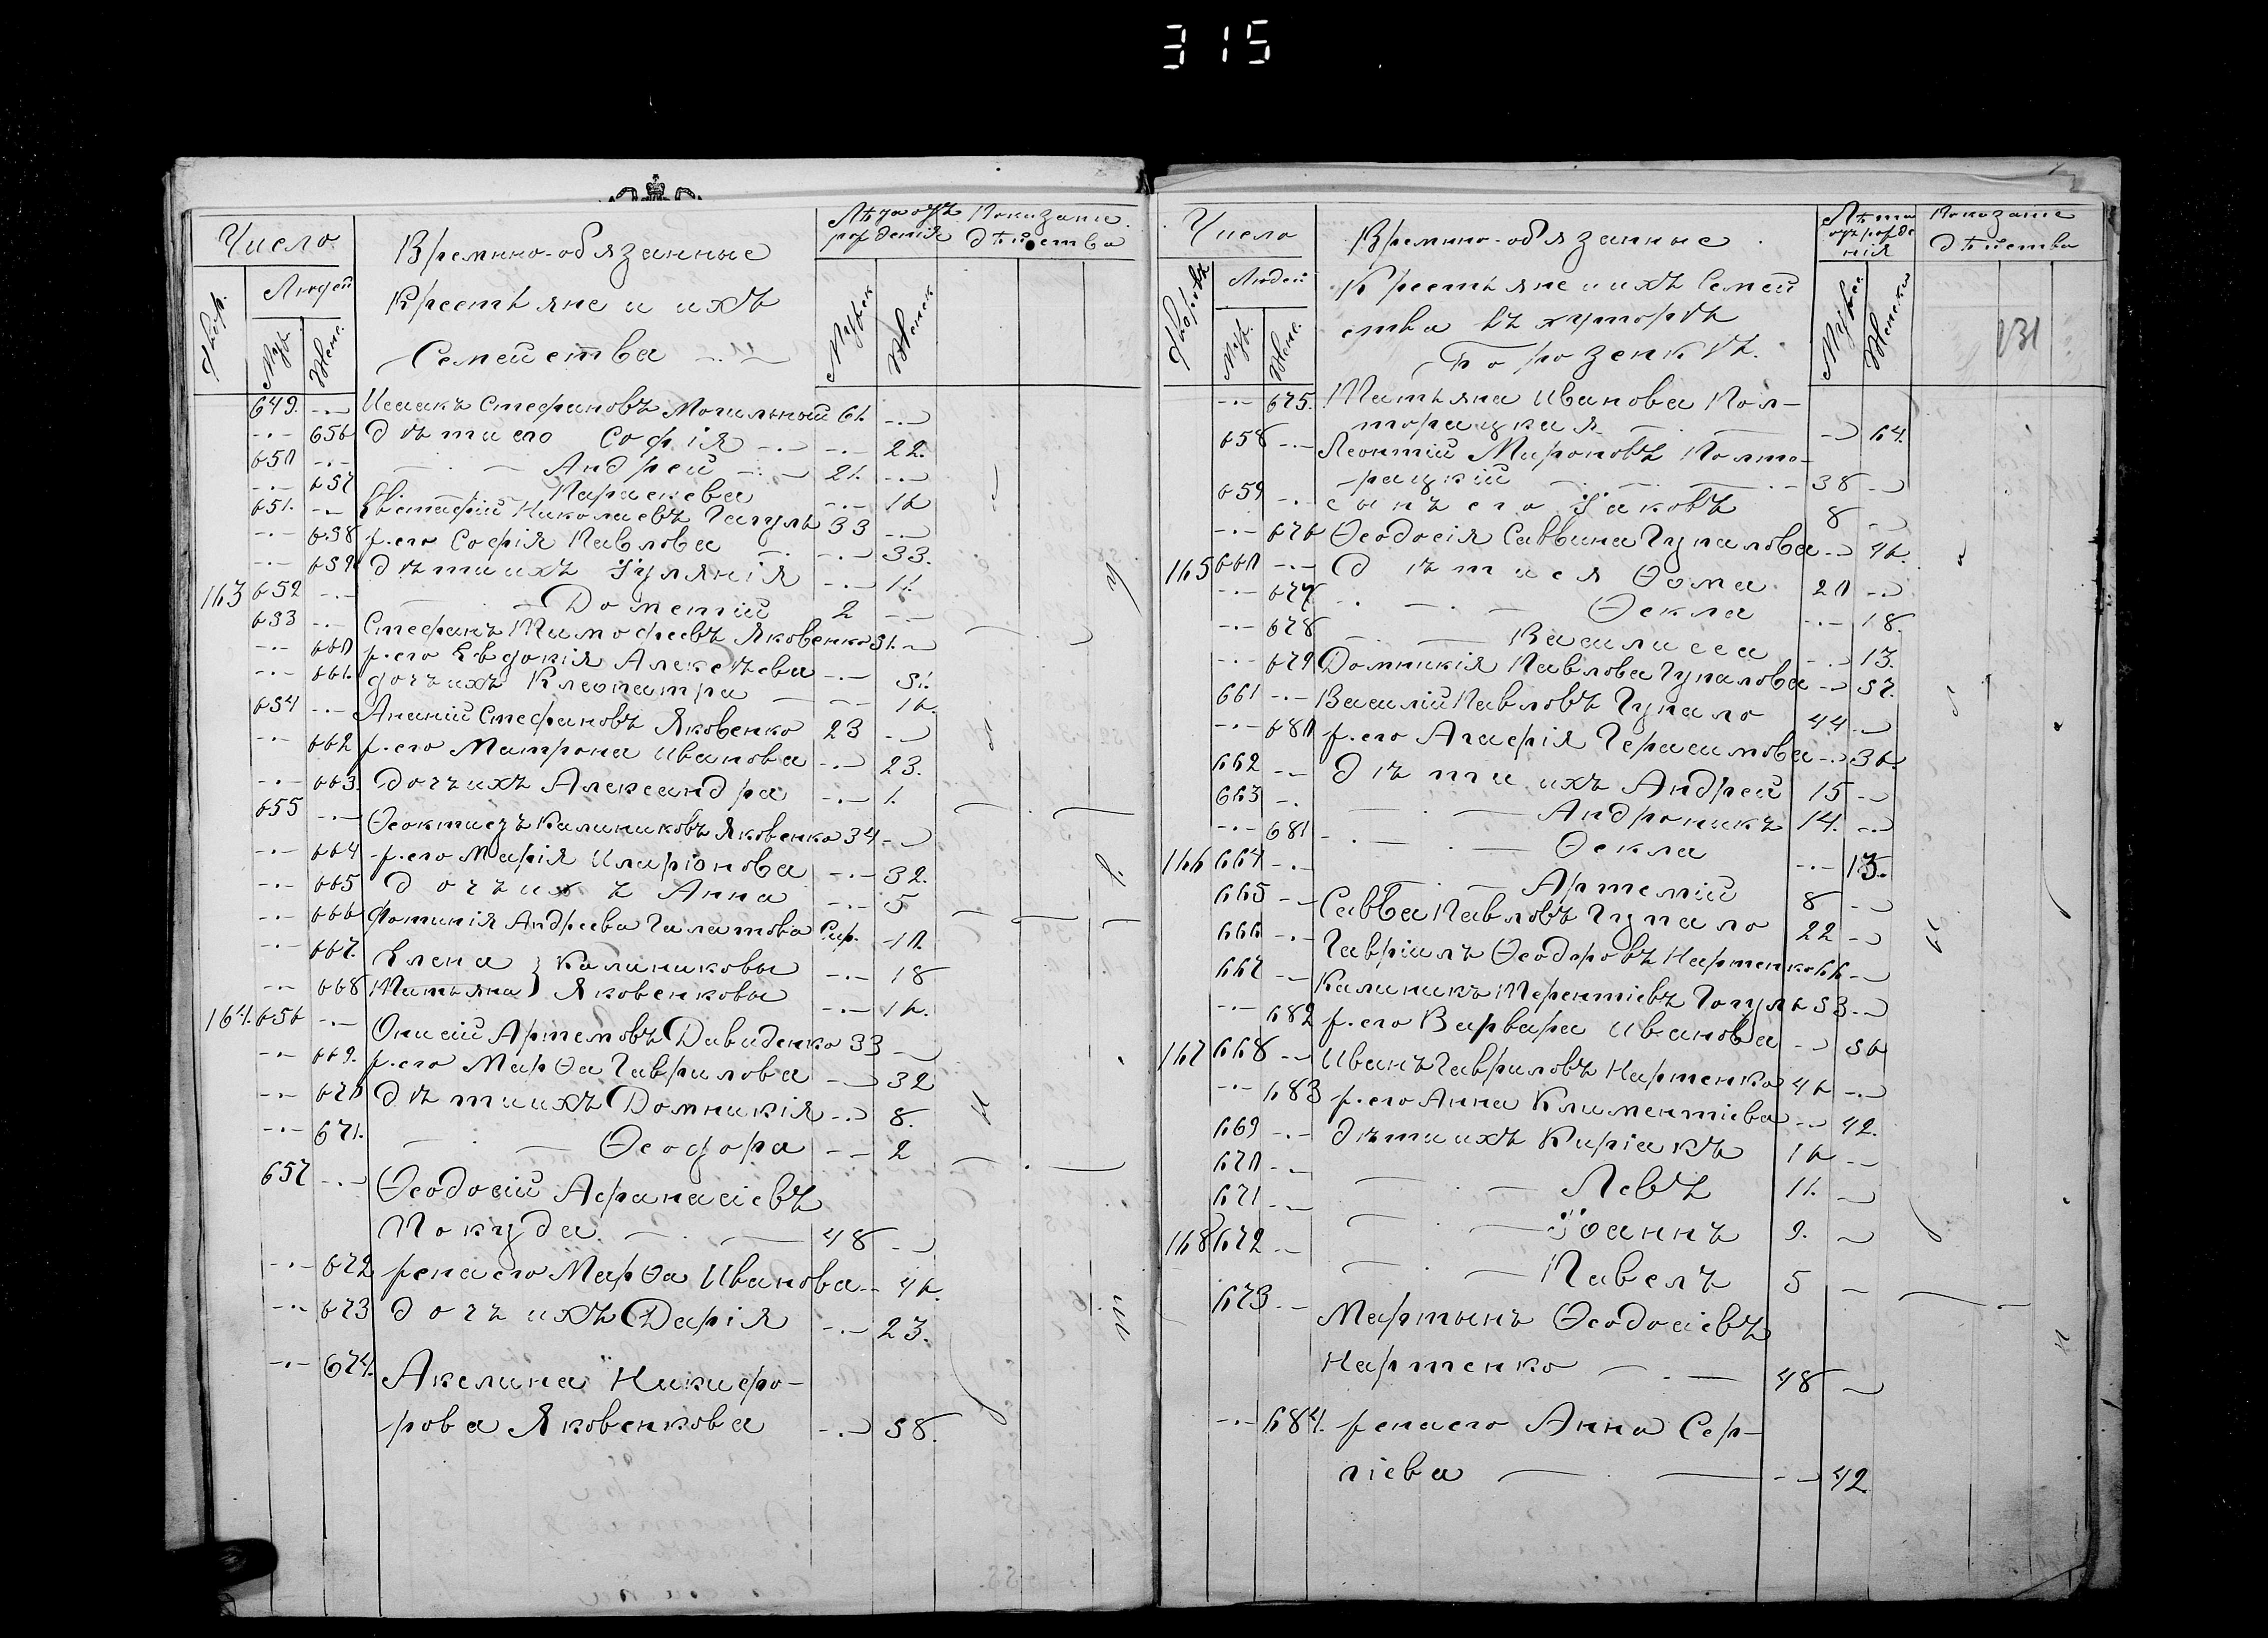 315
Число
Времнно-обязанные
Крестьяне и ихъ
Семейства
Лѣта отъ рожденія
Показаніе дѣйства
Двор.
Людей
Муж.
Женс.
Мужеск
Женск
649. Исаакъ Стефановъ Могильный 61.
656 дѣти его Софія 22.
650 Андрей 21.
657 Параскева 16
651. Евстафій Николаевъ Гагуль 33
658 ж. его Софія Павлова 33.
659 дѣти ихъ Іулянія 11.
163 652 Дометій 2
653 Стефанъ Тимофеевъ Яковенко 51.
660 ж. его Евдокія Алексѣева 51.
661. дочь ихъ Клеопатра 16.
654 Ананій Стефановъ Яковенко 23
662 ж. его Матрона Иванова 23.
663. дочь ихъ Александра 1.
655 Ѳеоктистъ Калиниковъ Яковенко 34
664 ж. его Марія Иларіонова 32.
665 дочь ихъ Анна 5
666 Фотинія Андреева Галатова Сир. 10.
667. Елена } Калиниковы 18
668 Татьяна } Яковенковы 16.
164. 656 Онисій Артемовъ Давиденко 33
669. ж. его Марѳа Гаврилова 32
670 дѣти ихъ Домникія 8.
671. Ѳеодора 2
657 Ѳеодосій Афанасіевъ
Покуда 48
672 жена его Марѳа Иванова 46.
673 дочь ихъ Дарія 23.
674. Акелина Никифо-
рова Яковенкова 58.
Число
Времнно-обязанные
Крестьяне и ихъ Семей
ства въ хуторѣ
Борозенкѣ.
Лѣта отъ рожденія
Показаніе дѣйства
Дворовъ
Людей
Муж.
Женс.
Мужес.
Женска
131
675. Татьяна Иванова Пол-
торацкая 64.
658 Леонтій Мироновъ Полто-
рацкій 38
659 сынъ его Іаковъ 8
676 Ѳеодосія Саввина Гупалова 46.
165 660 Дѣти ея Ѳома 20
677 Ѳекла 18.
678 Василисса 13.
679 Домникія Павлова Гупалова 57.
661 Василій Павловъ Гупало 44
680 ж. его Агафія Герасимова 36.
662 Дѣти ихъ Андрей 15
663 Андроникъ 14.
681 Ѳекла 13.
166 664 Артемій 8
665 Савва Павловъ Гупало 22
666 Гавріилъ Ѳеодоровъ Нартенко 66
667 Калиникъ Терентіевъ Гогуль 53
682 ж. его Варвара Иванова 56
167 668 Иванъ Гавриловъ Нартенко 46
683 ж. его Анна Климентіева 42.
669 дѣти ихъ Киріакъ 16
670 Левъ 11.
671 Іоаннъ 9.
168 672 Павелъ 5
673 Мартынъ Ѳеодосіевъ
Нартенко 48
684. жена его Анна Сер-
гіева 42